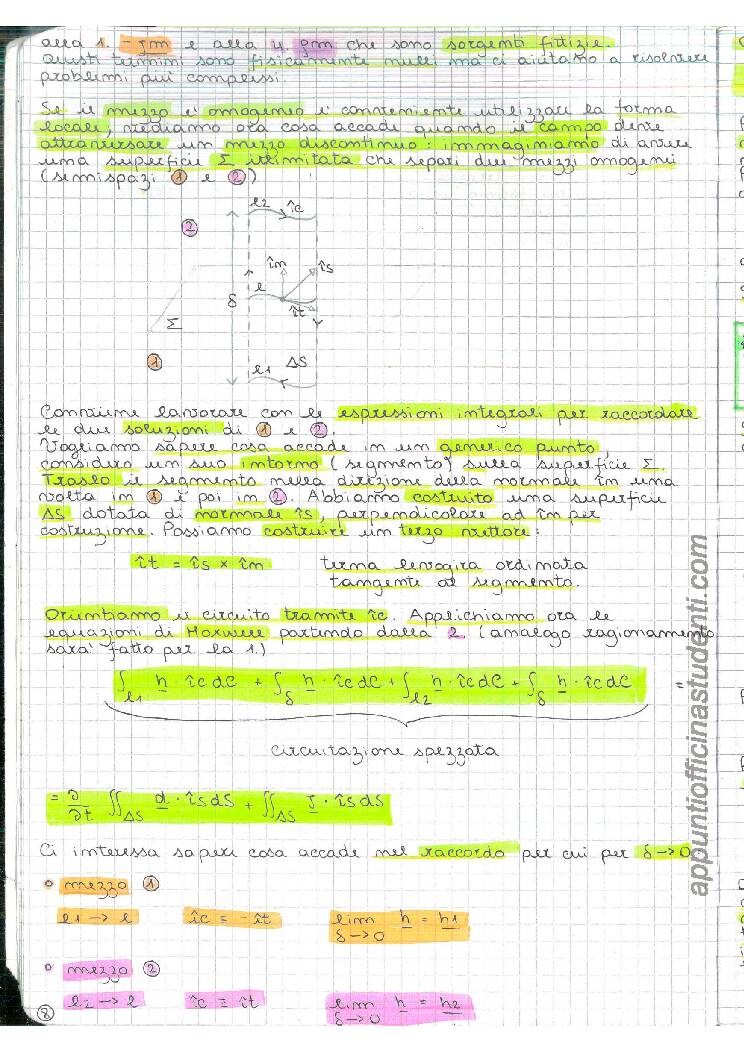 alla 1. -Jm e alla 4. ρm che sono sorgenti fittizie.
Questi termini sono fisicamente nulli ma ci aiutano a risolvere
problemi più complessi.
Se il mezzo è omogeneo è conveniente utilizzare la forma
locale, vediamo ora cosa accade quando il campo deve
attraversare un mezzo discontinuo: immaginiamo di avere
una superficie Σ illimitata che separi due mezzi omogenei
(semispazi 1 e 2)
l2 îc
2
în îs
l
δ
ît
Σ
1
l1 ΔS
Conviene lavorare con le espressioni integrali per raccordare
le due soluzioni di 1 e 2.
Vogliamo sapere cosa accade in un generico punto,
considero un suo intorno (segmento) sulla superficie Σ.
Traslo il segmento nella direzione della normale în una
volta in 1 e poi in 2. Abbiamo costruito una superficie
ΔS dotata di normale îs, perpendicolare ad în per
costruzione. Possiamo costruire un terzo vettore:
ît = îs × în terna levogira ordinata
tangente al segmento.
Orientiamo il circuito tramite îc. Applichiamo ora le
equazioni di Maxwell partendo dalla 2. (analogo ragionamento
sarà fatto per la 1.)
∫l1 h · îc dC + ∫δ h · îc dC + ∫l2 h · îc dC + ∫δ h · îc dC =
circuitazione spezzata
= ∂/∂t ∬ΔS d · îs dS + ∬ΔS J · îs dS
Ci interessa sapere cosa accade nel raccordo per cui per δ→0
o mezzo 1
l1 → l îc = -ît lim δ→0 h = h1
o mezzo 2
l2 → l îc = ît lim δ→0 h = h2
8
appuntiofficinastudenti.com